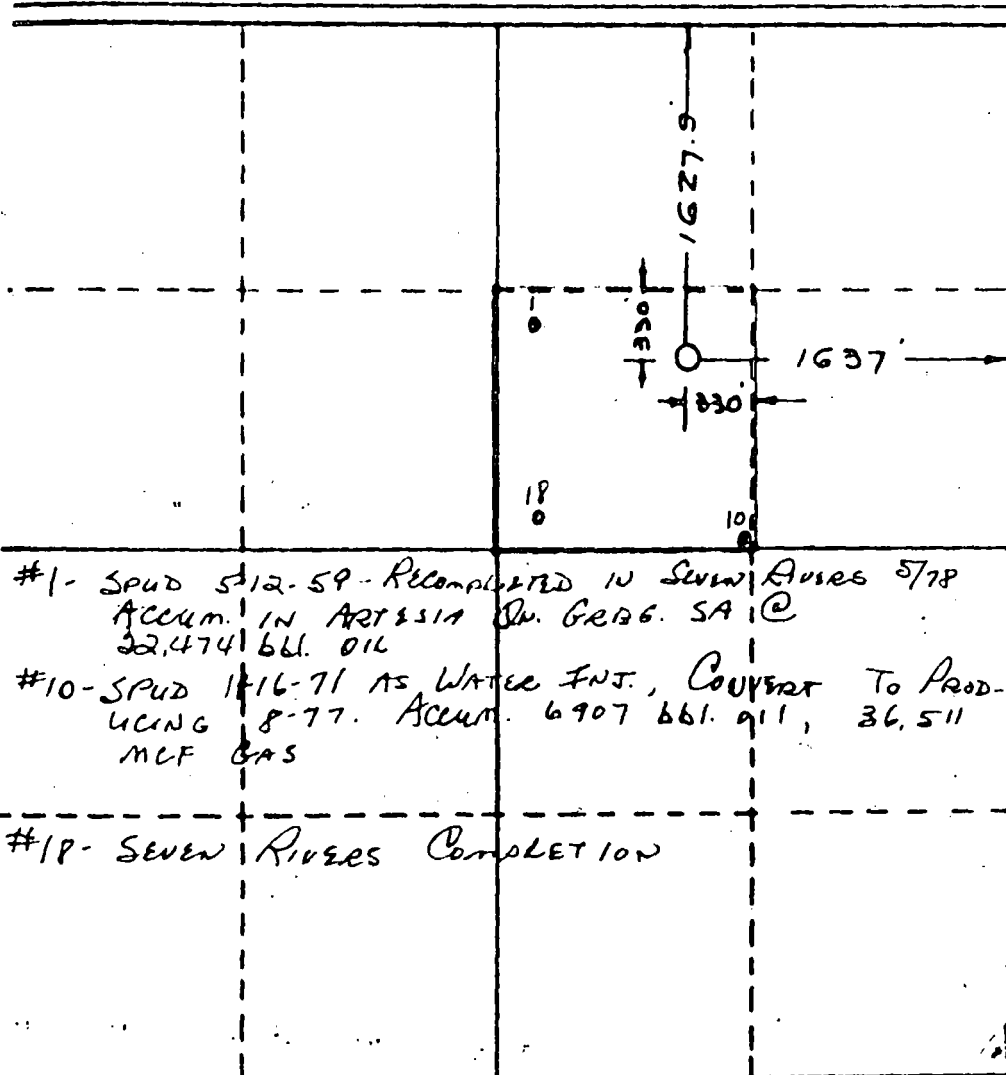 1627.5
330'
1637'
330'
1
18
10
#1- SPUD 5-12-59 - RECOMPLETED IN SEVEN RIVERS 5/78
ACCUM. IN ARTESIA QN. GRBG. SA @
22,474 bbl. OIL
#10- SPUD 11-16-71 AS WATER INJ., CONVERT TO PROD-
UCING 8-77. ACCUM. 6907 bbl. oil, 36,511
MCF GAS
#18- SEVEN RIVERS COMPLETION